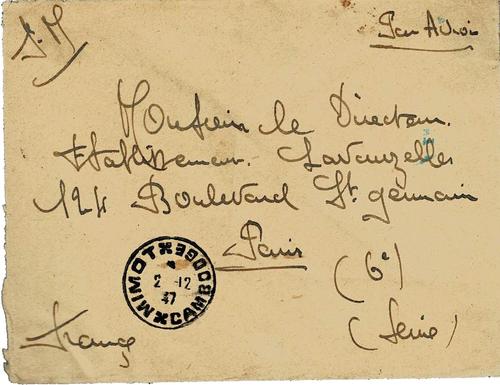 F. M
Par Avion
Monsieur le Directeur
Etablissement Lavauzelles
124 Boulevard St. germain
Paris
(6e)
(Seine)
France
MIMOT * CAMBODGE *
2-12
47